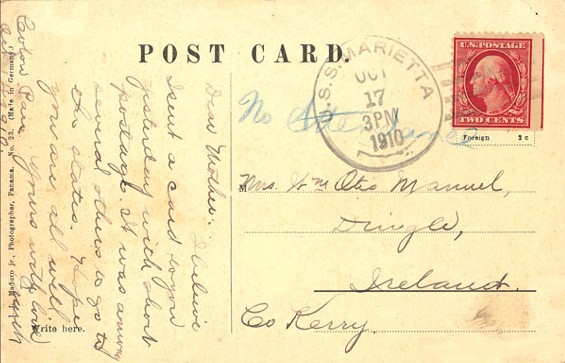 POST CARD.
U.S.S. MARIETTA
OCT
17
3PM
1910
U.S. POSTAGE
TWO CENTS
Foreign 2 c
No
M
Mrs. Wm Otis Manuel,
Dingle,
Ireland.
Co Kerry.
Dear Mother. I believe
I sent a card to you
yesterday with short
postage. It was among
several others to go to
the states. Hope
you are all well
Yours with love
Colon Pan
Write here.
Maduro Jr., Photographer, Panama. No. 23. (Made in Germany)